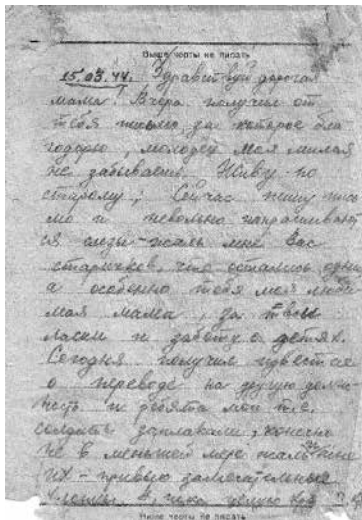 Выше черты не писать
15.03.44. Здравствуй дорогая
мама! Вчера получил от
тебя письмо за которое бла
годарю, молодец моя милая
не забываешь. Живу по
старому; Сейчас пишу пись
мо и невольно напрашивают
ся слезы - жаль мне Вас
старичков, что остались одни
а особенно тебя моя люби
мая мама, за твои
ласки и заботу о детях.
Сегодня получил известие
о переводе на другую долж
ность и ребята мои т.е.
солдаты заплакали, конечно
не в меньшей мере жаль мне
их - привык замечательные
Ниже черты не писать